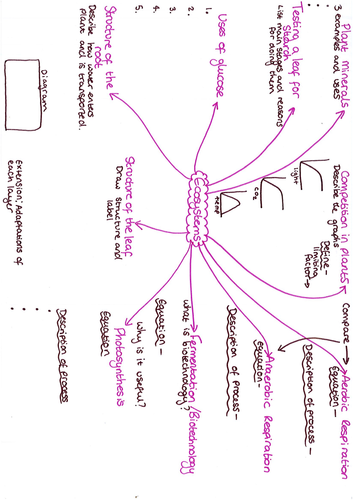 Plant minerals
• 3 examples and uses
•
•
Testing a leaf for
Starch
List main stages and reasons
for doing them
Uses of glucose
1.
2.
3.
4.
5.
Structure of the
root
Describe how water enters
plant and is transported.
Diagram
Competition in plants
Describe the graphs
Define -
limiting
factor→
light
CO2
temp
Ecosystems
Structure of the leaf
Draw structure and
label
Extension: Adaptations of
each layer
Compare
Aerobic Respiration
Equation -
Description of process -
Anaerobic Respiration
Equation -
Description of process -
Fermentation/Biotechnology
What is biotechnology?
Equation -
Why is it useful?
Photosynthesis
Equation
Description of process
•
•
•